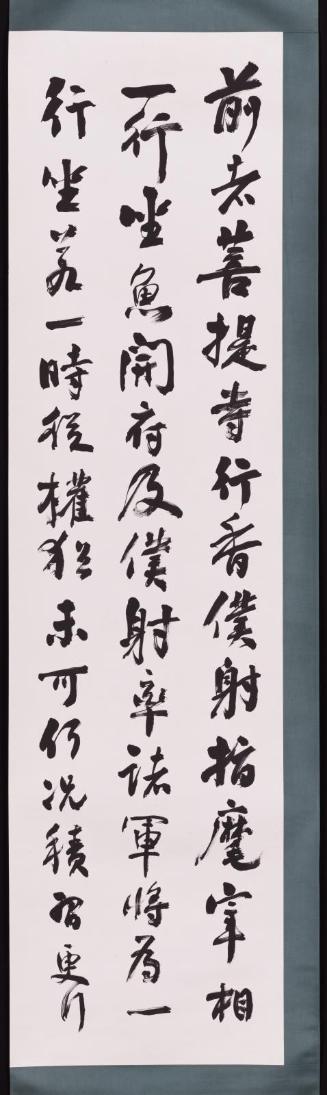 前者菩提寺行香僕射指麾宰相
一行坐魚開府及僕射率諸軍將為一
行坐若一時從權猶未可何况積習更行